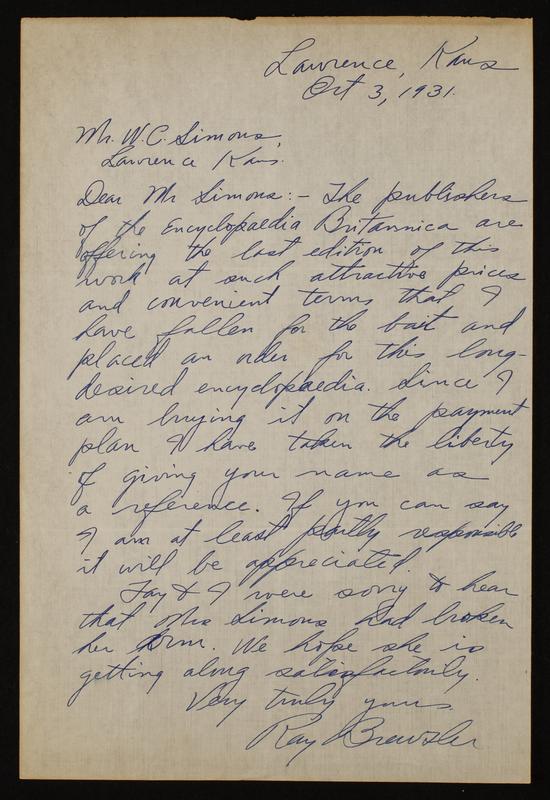 Lawrence, Kans
Oct 3, 1931.
Mr. W.C. Simons,
Lawrence Kans.
Dear Mr Simons:- The publishers
of the Encyclopaedia Britannica are
offering the last edition of this
work at such attractive prices
and convenient terms that I
have fallen for the bait and
placed an order for this long-
desired encyclopaedia. Since I
am buying it on the payment
plan I have taken the liberty
of giving your name as
a reference. If you can say
I am at least partly responsible
it will be appreciated.
Fay & I were sorry to hear
that Mrs Simons had broken
her arm. We hope she is
getting along satisfactorily.
Very truly yours.
Ray Brewster